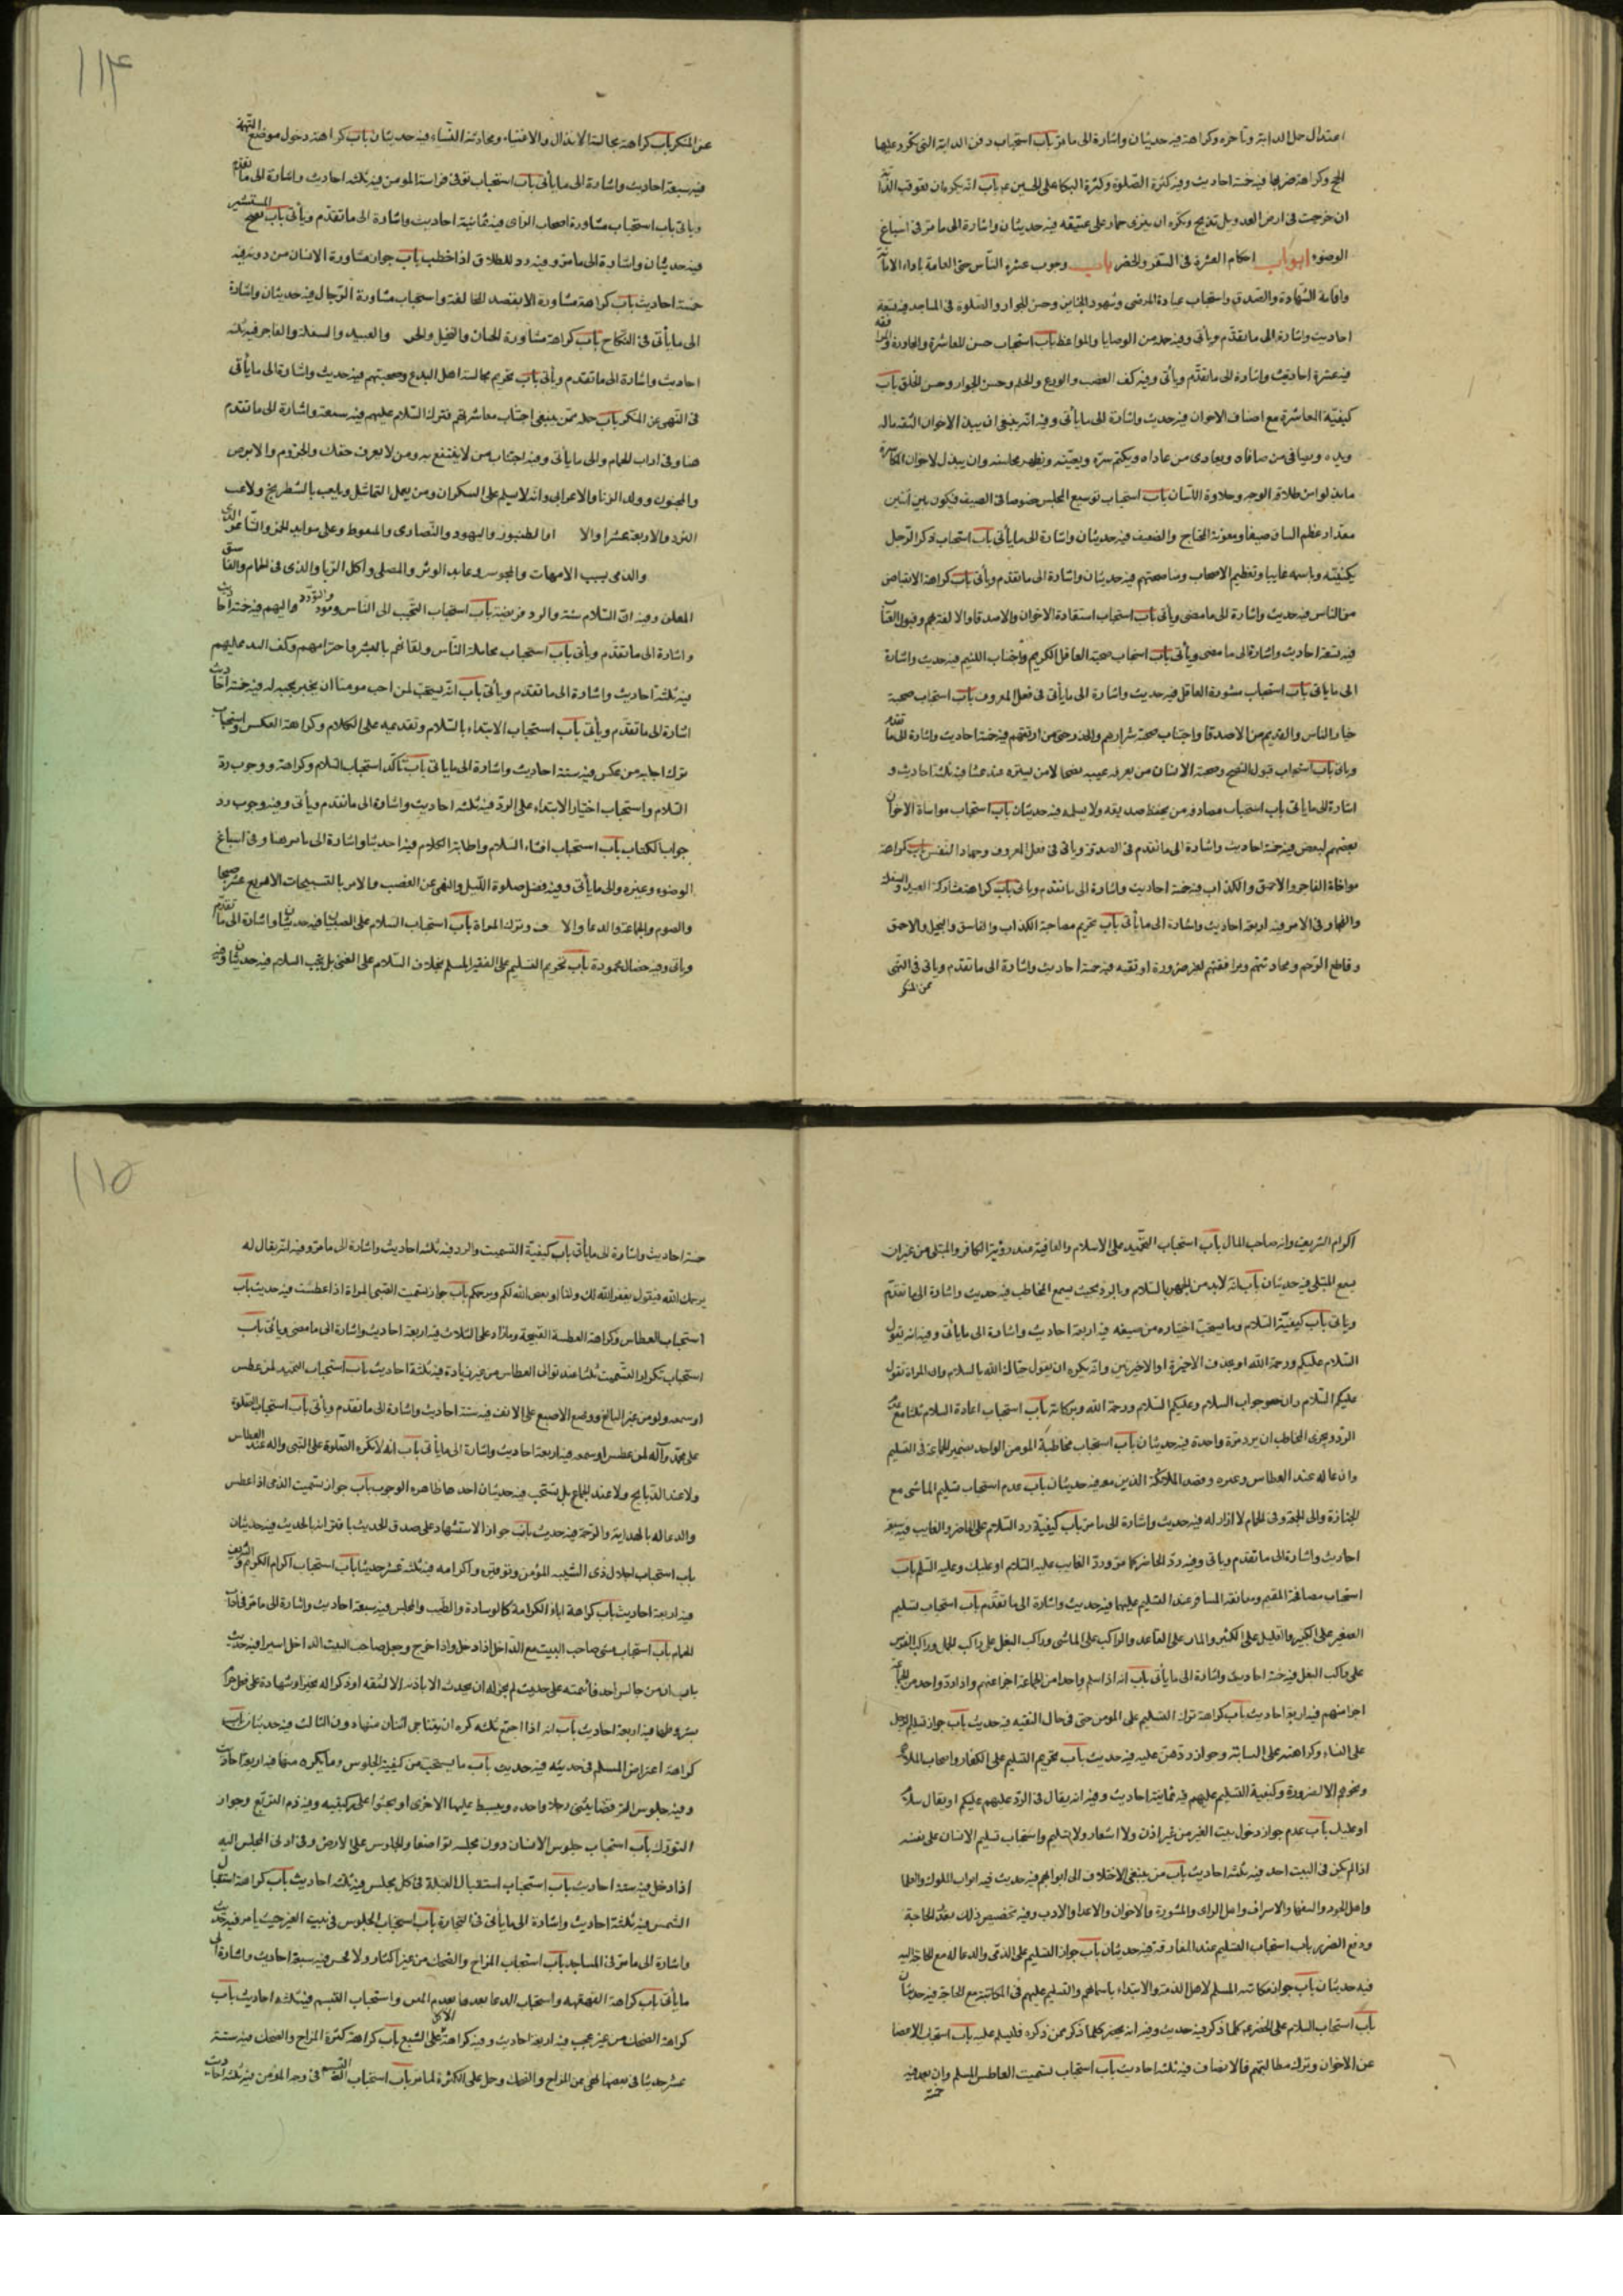 اعتدال حمل الدابة وتاخره وكراهة فيه حديثان واشارة الى ما مرّ باب استحباب دفن الدابة التى تكرر عليها
الحج وكراهة ضربها فيه خمسة احاديث وفيه كثرة الصلوة وكثرة البكا على الحسين ع باب انه يكره ان تعرقب الدابّة
ان خرجت فى ارض العدو بل تذبح ويكره ان ينزى حمار على عتيقه فيه حديثان واشارة الى ما مرّ فى اسباغ
الوضوء ابواب احكام العشرة فى السفر والحضر باب وجوب عشرة النّاس حتى العامة باداء الامانة
واقامة الشهادة والصدق واستحباب عيادة المرضى وشهود الجنايز وحسن الجوار والصلوة فى المساجد فيه تسعة
احاديث واشارة الى ما تقدّم ويأتى وفيه جمله من الوصايا والمواعظ باب استحباب حسن المعاشرة والمجاورة والمرافقه
فيه عشرة احاديث واشارة الى ما تقدّم ويأتى وفيه كف الغضب والورع والحلم وحسن الجوار وحسن الخلق باب
كيفيّة المعاشرة مع اصناف الاخوان فيه حديث واشارة الى ما يأتى وفيه انه ينبغى ان يبذل الاخوان الثقه ماله
ويده ويصافى من صافاه ويعادى من عاداه ويكتم سرّه ويعينه ويظهر محاسنه وان يبذل لاخوان المكاشرة
ما بذلوا من طلاقة الوجه وحلاوة اللّسان باب استحباب توسيع المجلس خصوصا فى الصيف فيكون بين اثنين
مقدار عظم الساق صيفا ومعونة المحتاج والضعيف فيه حديثان واشارة الى ما يأتى باب استحباب ذكر الرّجل
بكنيته وباسمه غايبا وتعظيم الاصحاب ومناصحتهم فيه حديثان واشارة الى ما تقدم ويأتى باب كراهة الانقباض
من الناس فيه حديث واشارة الى ما مضى ويأتى باب استحباب استفادة الاخوان والاصدقا والالفة بهم وقبول العتاب
فيه تسعة احاديث واشارة الى ما مضى ويأتى باب استحباب صحبة العاقل الكريم واجتناب اللئيم فيه حديث واشارة
الى ما ياتى باب استحباب مشورة العاقل فيه حديث واشارة الى ما يأتى فى فعل المعروف باب استحباب صحبة
خيار الناس والقديم من الاصدقا واجتناب صحبة شرارهم والحذر حتى من اوثقهم فيه خمسة احاديث واشارة الى ما تقدم
وياتى باب استحباب قبول النصح وصحبة الانسان من يعرفه عيبه نصحا لا من يستره عنه غشا فيه ثلثة احاديث و
اشارة الى ما يأتى باب استحباب مصادقة من يحفظ صديقه ولا يسلمه فيه حديثان باب استحباب مواساة الاخوان
بعضهم لبعض فيه خمسة احاديث واشارة الى ما تقدم فى الصدقة وياتى فى فعل المعروف وجهاد النفس باب كراهة
مواخاة الفاجر والاحمق والكذاب فيه خمسة احاديث واشارة الى ما تقدم وياتى باب كراهة مشاركة العبيد والسفلة
والفجار فى الامر فيه اربعة احاديث واشارة الى ما يأتى باب تحريم مصاحبة الكذاب والفاسق والبخيل والاحمق
وقاطع الرّحم ومحادثتهم ومرافقتهم لغير ضرورة او تقيه فيه خمسة احاديث واشارة الى ما تقدم وياتى فى النهى
عن المنكر
١١٤
عن المنكر باب كراهة مجالسة الانذال والاغنياء ومحادثة النّساء فيه حديثان باب كراهة دخول موضع التهمة
فيه سبعة احاديث واشارة الى ما يأتى باب استحباب توقى فراسة المومن فيه ثلثه احاديث واشارة الى ما تقدم
وياتى باب استحباب مشاورة اصحاب الراى فيه ثمانية احاديث واشارة الى ما تقدّم ويأتى باب نصح المستشير
فيه حديثان واشارة الى ما مرّ وفيه رد للطلاق اذا خطب باب جواز مشاورة الانسان من دونه فيه
خمسة احاديث باب كراهة مشاورة الا بقصد المخالفة واستحباب مشاورة الرّجال فيه حديثان واشارة
الى ما يأتى فى النّكاح باب كراهة مشاورة الجبان والبخيل والحر والعبيد والسفلة والفاجر فيه ثلثه
احاديث واشارة الى ما تقدم ويأتى باب تحريم مجالسة اهل البدع وصحبتهم فيه حديث واشارة الى ما يأتى
فى النّهى عن المنكر باب جمله ممّن ينبغى اجتناب معاشرتهم فترك السّلام عليهم فيه سبعة واشارة الى ما تقدم
هنا وفى اداب الحمام والى ما يأتى وفيه اجتناب من لا ينتفع به ومن لا يعرف حقك والمجزوم والابرص
والمجنون وولد الزنا والاعرابى وانه لا يسلم على السكران ومن يعمل التماثيل ويلعب بالشطرنج ولاعب
النرد والاربعة عشر اوالا اوالطنبور واليهود والنّصارى والمتغوط وعلى موايد الخمر والشاعر الذى
والذى يسبب الامهات والمجوس وعابد الوثن والمصلى واكل الرّبا والذى فى الحمام والفاسق
المعلن وفيه انّ السّلام سنّة والرد فريضة باب استحباب التّحبب الى النّاس والتودّد واليهم فيه خمسة احاديث
واشارة الى ما تقدّم ويأتى باب استحباب مجاملة النّاس ولقائهم بالبشر واحترامهم وكف اليد عليهم
فيه ثلثة احاديث واشارة الى ما تقدم ويأتى باب انّه يستحبّ لمن احب مومنا ان يخبر بحبه له فيه خمسة احاديث
اشارة الى ما تقدّم ويأتى باب استحباب الابتداء بالسّلام وتقديمه على الكلام وكراهة العكس واستحباب
ترك اجابه من عكس فيه ستة احاديث واشارة الى ما ياتى باب تأكّد استحباب السّلام وكراهة ووجوب ردّ
السّلام واستحباب اختيار الابتداء على الردّ فيه ثلثه احاديث واشارة الى ما تقدم ويأتى وفيه وجوب رد
جواب الكتاب باب استحباب افشاء السّلام واطابة الكلام فيه احديثا واشارة الى ما مر هنا وفى اسباغ
الوضوء وغيره والى ما يأتى وفيه فضل صلوة اللّيل والنهى عن الغضب والامر بالتسبيحات الاربع عشر صبحا
والصوم والجماعة والدعا والا وترك المراة باب استحباب السّلام على الصبيان فيه حديثان واشارة الى ما تقدّم
وياتى وفيه خصال محمودة باب تحريم التسليم على الفقير المسلم بخلاف السّلام على الغنى بل يجب السلام فيه حديثان وفيه
اكرام الشريعة وانه صاحب المال باب استحباب التحميد على الاسلام والعافية عند رؤية الكافر والمبتلى من غير ان
يسمع المبتلى فيه حديثان باب انّه لا بد من الجهر بالسّلام وبالرد بحيث يسمع المخاطب فيه حديث واشارة الى ما تقدّم
وياتى باب كيفيّة السّلام وما يستحبّ اختياره من صيغه فيه اربعة احاديث واشارة الى ما يأتى وفيه انه يقول
السّلام عليكم ورحمة الله او يحذف الاخيرة او الاخيرتين وانّه يكره ان يقول حيّاك الله بالسلام وان المراة تقول
عليكم السّلام وان هو جواب السلام وعليكم السّلام ورحمة الله وبركاته باب استحباب اعادة السلام ثلثا مع
الردّ ويجزى المخاطب ان يرد مرّة واحدة فيه حديثان باب استحباب مخاطبة المومن الواحد بضمير الجماعة فى التسليم
وان عاله عند العطاس وغيره وقصد الملائكة الذين معه فيه حديثان باب عدم استحباب تسليم الماشى مع
الجنازة والى الجمعة وفى الحمام لا ازار له فيه حديث واشارة الى ما مرّ باب كيفية رد السّلام على الحاضر والغايب فيه سبعة
احاديث واشارة الى ما تقدم وياتى وفيه ردّ الحاضر كما مرّ وردّ الغايب عليه السّلام او عليك وعليه السّلم باب
استحباب مصافحة المقيم ومعانقة المسافر عند التسليم عليهما فيه حديث واشارة الى ما تقدّم باب استحباب تسليم
الصغير على الكبير والقليل على الكثير والمار على القاعد والراكب على الماشى وراكب البغل على راكب الحمار وراكب الفرس
على راكب البغل فيه خمسة احاديث واشارة الى ما يأتى باب انه اذا سلم واحد من الجماعة اجزا عنهم واذا ردّ واحد من الجماعة
اجزا عنهم فيه اربعة احاديث باب كراهة ترك التسليم على المومن حتى فى حال التقيه فيه حديث باب جواز تسليم الرّجل
على النساء وكراهته على الشابة وجواز ردّهنّ عليه فيه حديث باب تحريم التسليم على الكفار واصحاب الملاهى
ونحوهم الا لضرورة وكيفية التسليم عليهم فيه ثمانية احاديث وفيه انه يقال فى الردّ عليهم عليكم او يقال سلام
او عليك باب عدم جواز دخول بيت الغير من غير اذن ولا اشعار ولا تسليم واستحباب تسليم الانسان على نفسه
اذا لم يكن فى البيت احد فيه ثلثه احاديث باب من ينبغى الاختلاف الى ابوابهم فيه حديث فيه ابواب الملوك والعلما
واهل الجود والسفها والاسراف واهل الراى والمشورة والاخوان والاعدا والادب وفيه تخصيص ذلك بقدر الحاجة
ودفع الضرر باب استحباب التسليم عند المفارقة فيه حديثان باب جواز التسليم على الذمّى والدعا له مع الحاجة اليه
فيه حديثان باب جواز مكاتبه المسلم لاهل الذمة والابتداء باسمائهم والتسليم عليهم فى المكاتبة مع الحاجة فيه حديثان
باب استحباب السلام على الخضر ع كلما ذكر فيه حديث وفيه انه يحضر كلما ذكر فمن ذكره فليسلم عليه باب استحباب الاغضا
عن الاخوان وترك مطالبتهم فالانصاف فيه ثلثه احاديث باب استحباب تسميت العاطس المسلم وان بعد فيه
خمسة
١١٥
خمسة احاديث واشارة الى ما يأتى باب كيفيّة التسميت والرد فيه ثلثه احاديث واشارة الى ما مرّ وفيه انّه يقال له
يرحمك الله فيقول يغفر الله لك ولنا او يغفر الله لكم ويرحمكم باب جواز تسميت الصّبى المراة اذا عطست فيه حديث باب
استحباب العطاس وكراهة العطسة القبيحة وما زاد على الثلاث فيه اربعة احاديث واشارة الى ما مضى ويأتى باب
استحباب تكرار التّسميت ثلثا عند توالى العطاس من غير زيادة فيه ثلثة احاديث باب استحباب التحميد لمن عطس
او سمعه ولو من غير البالغ ووضع الاصبع على الانف فيه ستة احاديث واشارة الى ما تقدم ويأتى باب استحباب الصّلوة
على محمّد وآله لمن عطس او سمعه فيه اربعة احاديث واشارة الى ما يأتى باب انه لا تكره الصّلوة على النّبى واله عند العطاس
ولا عند الذّبايح ولا عند الجماع بل تستحب فيه حديثان احدهما ظاهره الوجوب باب جواز تسميت الذمى اذا عطس
والدعا له بالهداية والرّحمة فيه حديث باب جواز الاستشهاد على صدق الحديث باقترانه بالحديث فيه حديثان
باب استحباب اجلال ذى الشّيبه المؤمن وتوقيره واكرامه فيه ثلثة عشر حديثا باب استحباب اكرام الكريم والشّريف
فيه اربعة احاديث باب كراهة اباء الكرامة كالوسادة والطّيب والمجلس فيه سبعة احاديث واشارة الى ما مرّ فى آداب
الحمام باب استحباب مشى صاحب البيت مع الدّاخل اذا دخل واذا خرج وجعل صاحب البيت الداخل اميرا فيه حديث
باب ان من جالس احد فأتمنه على حديث لم يجز له ان يحدث الا باذنه الا لثقه او ذكرا له بخير او شهادة على فعل حرام
بشروطها فيه اربعة احاديث باب انه اذا اجتمع ثلثه كره ان يتناجى اثنان منهما دون الثالث فيه حديثان باب
كراهة اعتراض المسلم فى حديثه فيه حديث باب ما يستحبّ من كيفية الجلوس وما يكره منها فيه اربعة احاديث
وفيه جلوس القرفصا يثنى رجلا واحده ويبسط عليها الاخرى او يجثوا على ركبتيه وفيه ذم التربّع وجواز
التورّك باب استحباب جلوس الانسان دون مجلسه تواضعا والجلوس على الارض وفى ادنى المجلس اليه
اذا دخل فيه ستة احاديث باب استحباب استقبال القبلة فى كل مجلس فيه ثلثه احاديث باب كراهة استقبال
الشّمس فيه ثلثة احاديث واشارة الى ما يأتى فى التجارة باب استحباب الجلوس فى بيت الغير حيث يامر فيه حديث
واشارة الى ما مرّ فى المساجد باب استحباب المزاح والضحك من غير اكثار ولا فحش فيه سبعة احاديث واشارة الى
ما يأتى باب كراهة القهقهه واستحباب الدعا بعدها بعدم المقت واستحباب التبسم فيه ثلثه احاديث باب
كراهة الضحك من غير عجب فيه اربعة احاديث وفيه كراهة الاكل على الشبع باب كراهة كثرة المزاح والضحك فيه ستة
عشر حديثا فى بعضها نهى عن المزاح والضحك وحمل على الكثرة لما مرّ باب استحباب التبسم فى وجه المؤمن فيه ثلثه احاديث